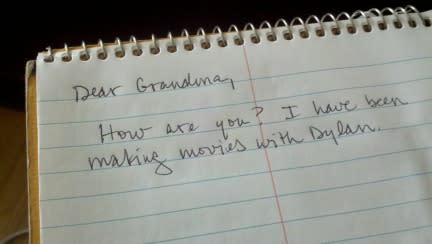 Dear Grandma,
How are you? I have been
making movies with Dylan.